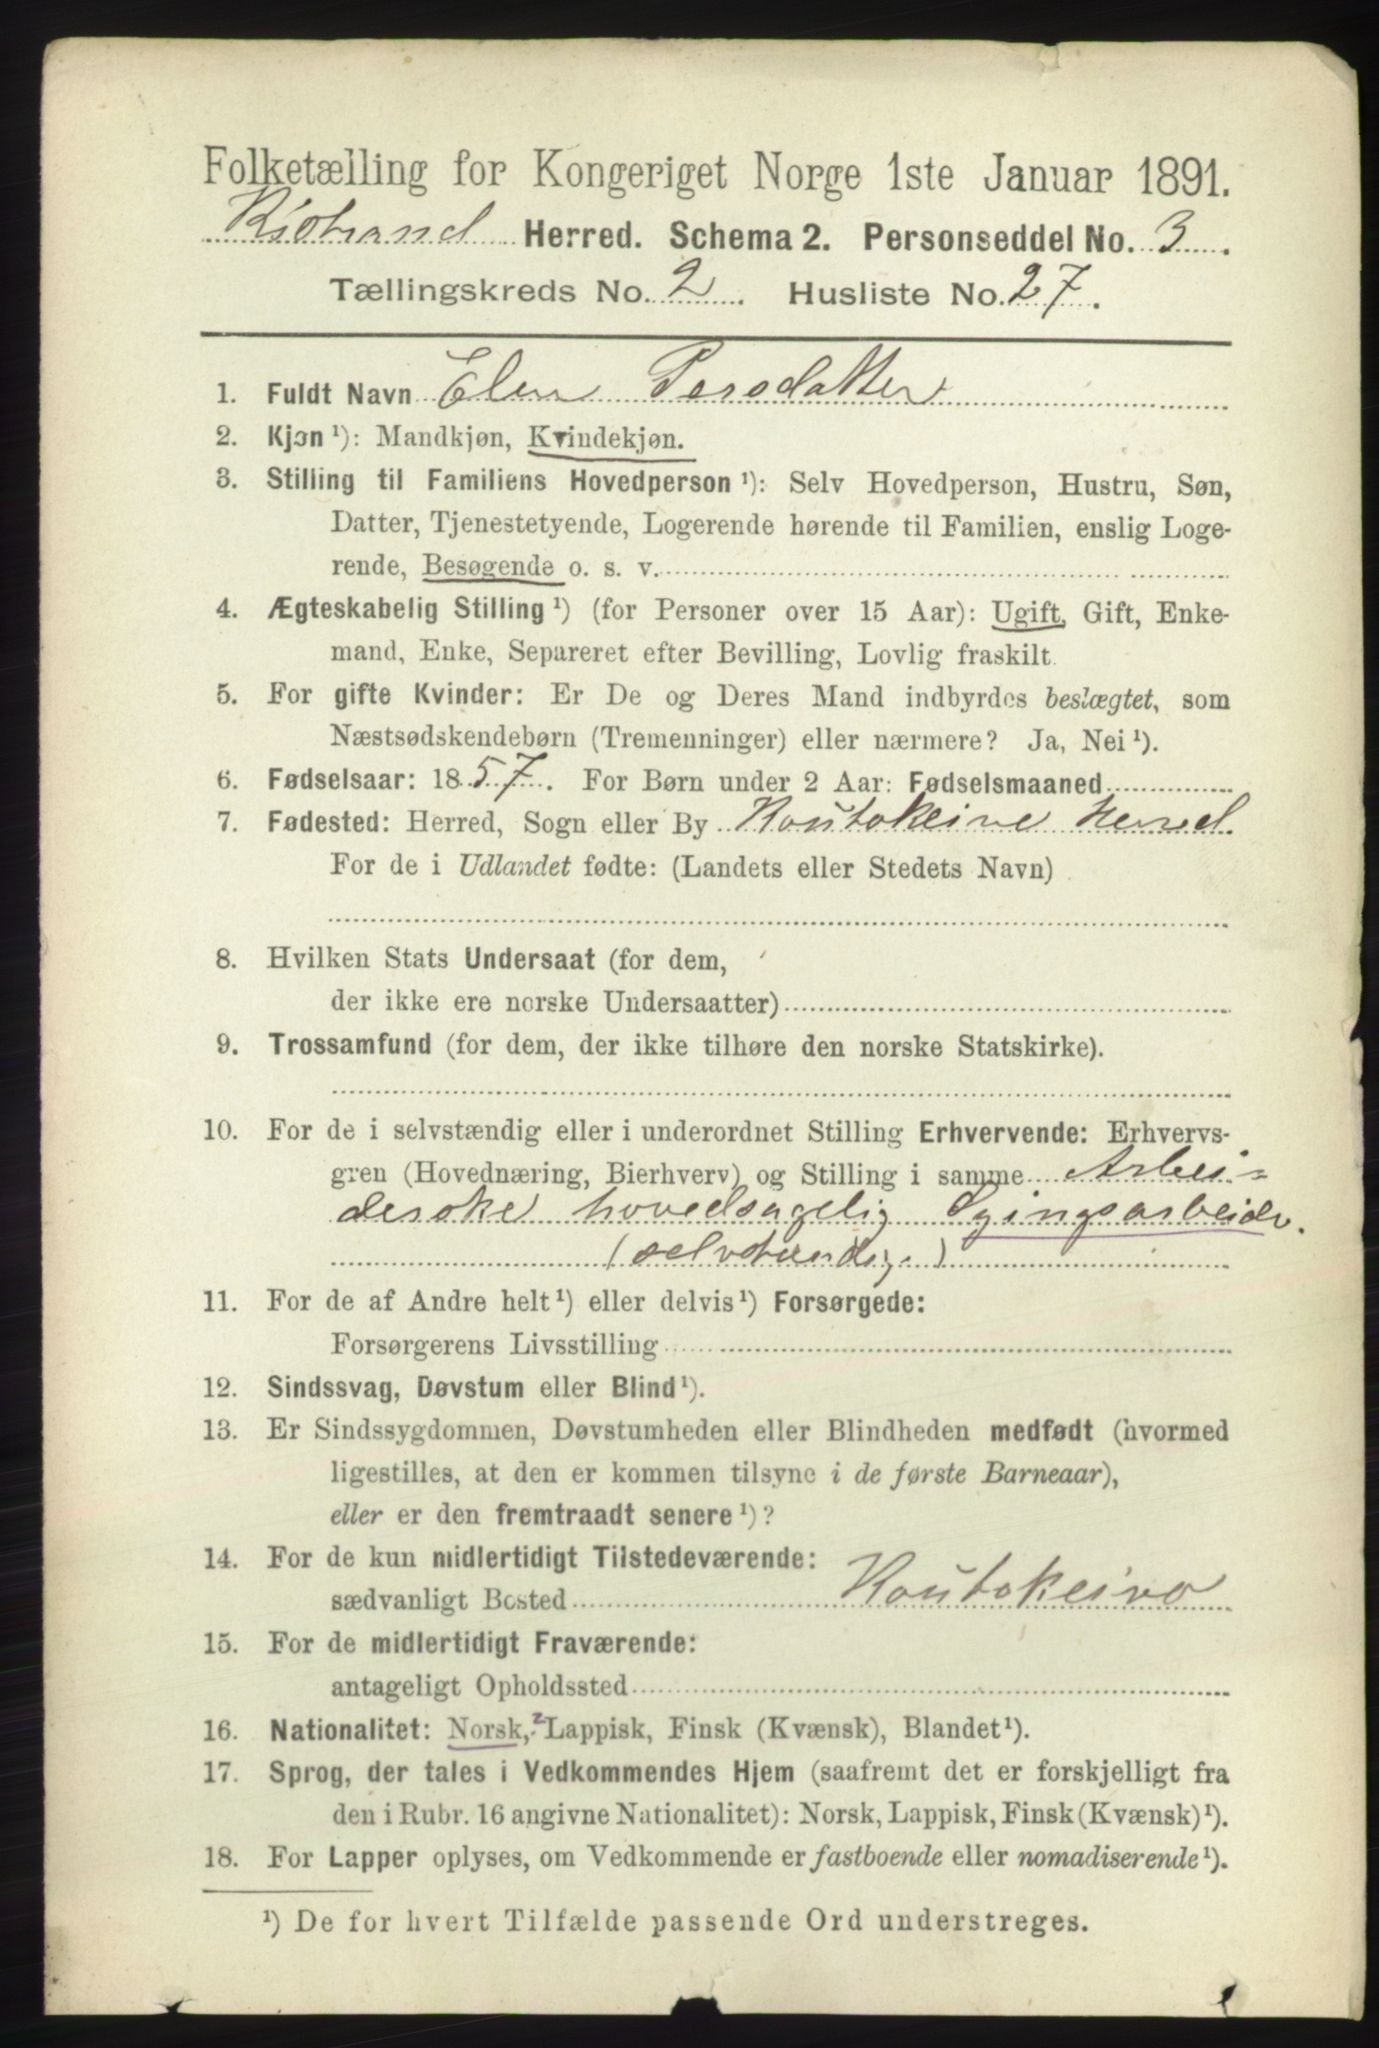 Folketælling for Kongeriget Norge 1ste Januar 1891.
Kistrand Herred. Schema 2. Personseddel No. 3.
Tællingskreds No. 2. Husliste No. 27.
1. Fuldt Navn Elen Persdatter
2. Kjøn ¹): Mandkjøn, Kvindekjøn.
3. Stilling til Familiens Hovedperson ¹): Selv Hovedperson, Hustru, Søn,
Datter, Tjenestetyende, Logerende hørende til Familien, enslig Loge-
rende, Besøgende o. s. v.
4. Ægteskabelig Stilling ¹) (for Personer over 15 Aar): Ugift, Gift, Enke-
mand, Enke, Separeret efter Bevilling, Lovlig fraskilt.
5. For gifte Kvinder: Er De og Deres Mand indbyrdes beslægtet, som
Næstsødskendebørn (Tremenninger) eller nærmere? Ja, Nei ¹).
6. Fødselsaar: 1857. For Børn under 2 Aar: Fødselsmaaned
7. Fødested: Herred, Sogn eller By Koutokeino Herred.
For de i Udlandet fødte: (Landets eller Stedets Navn)
8. Hvilken Stats Undersaat (for dem,
der ikke ere norske Undersaatter)
9. Trossamfund (for dem, der ikke tilhøre den norske Statskirke).
10. For de i selvstændig eller i underordnet Stilling Erhvervende: Erhvervs-
gren (Hovednæring, Bierhverv) og Stilling i samme Arbei-
derske hovedsagelig Syingsarbeide.
(selvstændig)
11. For de af Andre helt ¹) eller delvis ¹) Forsørgede:
Forsørgerens Livsstilling
12. Sindssvag, Døvstum eller Blind ¹).
13. Er Sindssygdommen, Døvstumheden eller Blindheden medfødt (hvormed
ligestilles, at den er kommen tilsyne i de første Barneaar),
eller er den fremtraadt senere ¹)?
14. For de kun midlertidigt Tilstedeværende:
sædvanligt Bosted Koutokeino
15. For de midlertidigt Fraværende:
antageligt Opholdssted
16. Nationalitet: Norsk,² Lappisk, Finsk (Kvænsk), Blandet ¹).
17. Sprog, der tales i Vedkommendes Hjem (saafremt det er forskjelligt fra
den i Rubr. 16 angivne Nationalitet): Norsk, Lappisk, Finsk (Kvænsk) ¹).
18. For Lapper oplyses, om Vedkommende er fastboende eller nomadiserende ¹).
¹) De for hvert Tilfælde passende Ord understreges.